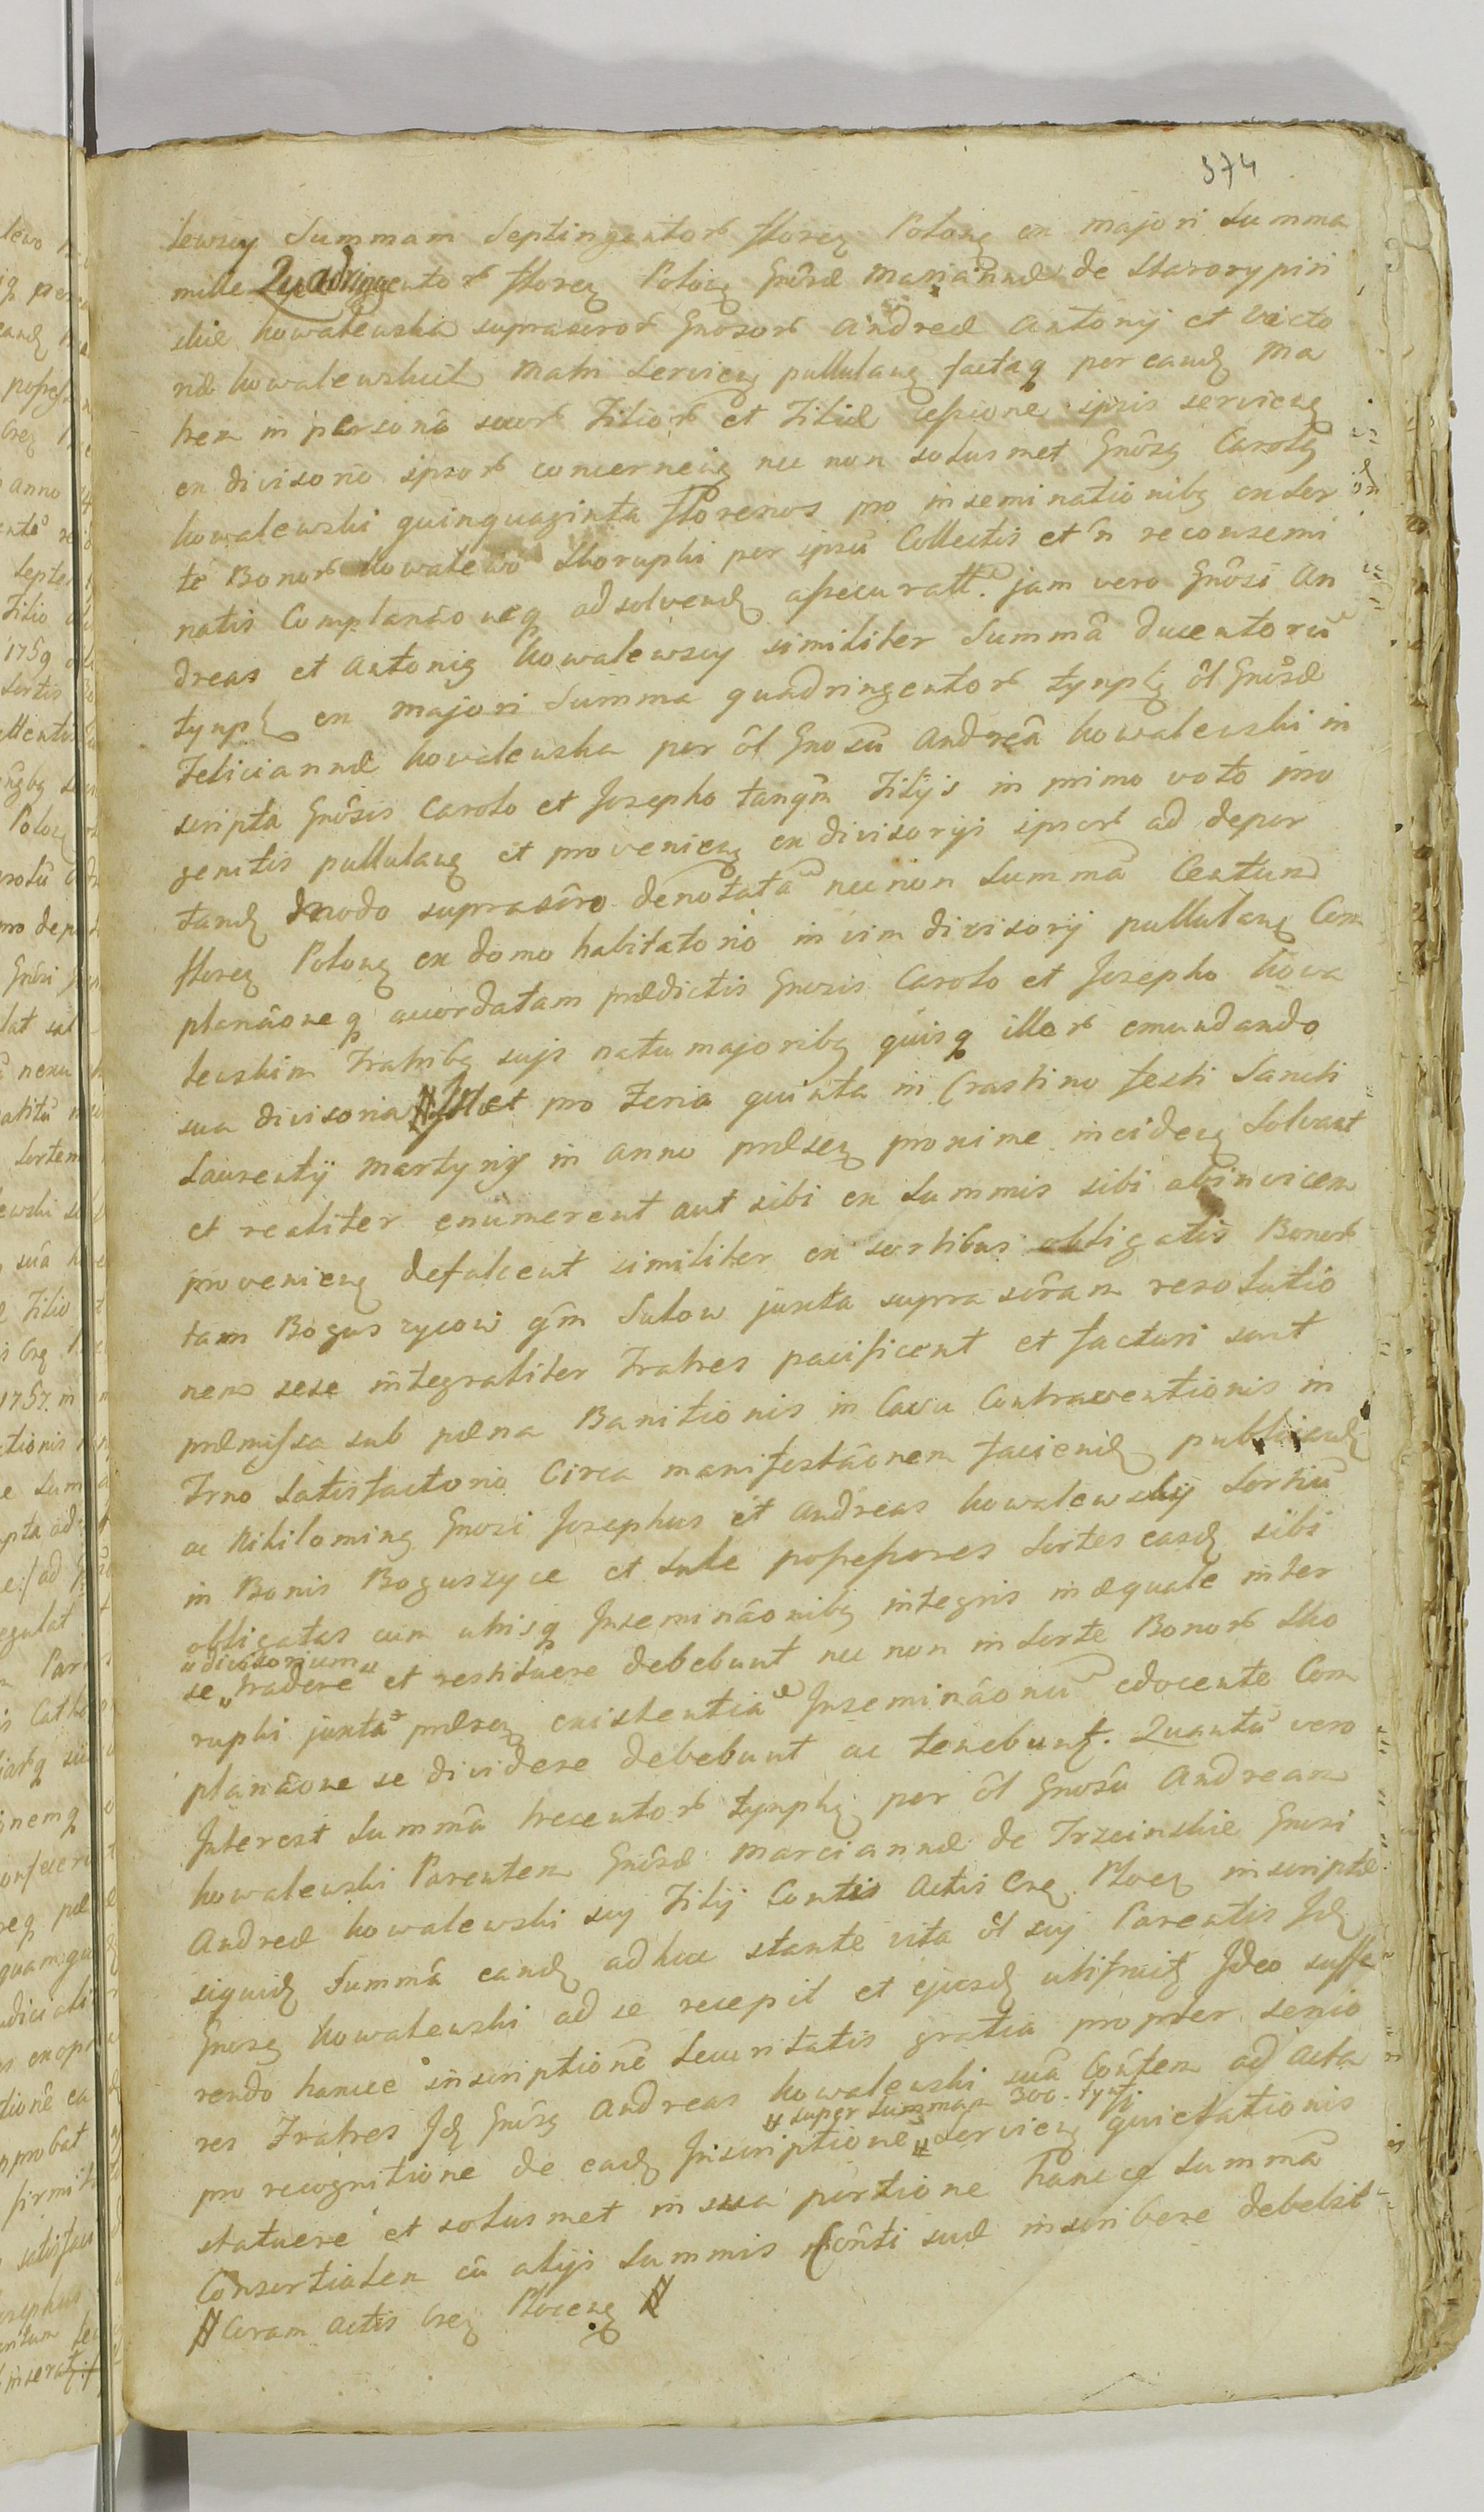 374
lewscy Summam Septingentor floreꝫ Poloneꝫ ex majori Summa
mille Quadringentor floreꝫ Poloneꝫ Gnôsæ Mariannæ de Starorypin
skie Kowalewska suprascror Gnosor Andreæ Antonij et Victo
riæ Kowalewskich Matri Servieꝫ pullulaꝫ factaq per eandꝫ Ma
trem in personâ suor Filior et Filiæ cessione ipsis servieꝫ
ex divisorio ipsor concerneꝫ nec non solusmet Gnôsꝫ Carolꝫ
Kowalewski quinquaginta florenos pro inseminationibꝫ ex Sor
te Bonor Kowalewo Skorupki per ipsû Collectis et ñ reconsemi
natis Complanâoneq adsolvendꝫ assecuratt. jam vero Gnôsi An
dreas et Antonig Kowalewscy similiter Summâ Ducentorû
tymph ex majori Summa quadringentor tymphꝫ ôl Gnôsæ
Feliciannæ Kowalewska per ôl Gnosû Andreâ Kowalewski in
scripta Gnôsis Carolo et Josepho tanqm̃ Filijs in primo voto pro
genitis pullulaꝫ et provenieꝫ ex divisorijs ipsor ad depor
tandꝫ modo suprascro denotatâ nec non Summâ Centum
floreꝫ Poloneꝫ ex domo habitatorio in vim divisorij pullulaneꝫ Com
planâoneq accordatam prædictis Gnosis Carolo et Josepho Kowa
lewskim Fratribꝫ suis natu majoribꝫ quisq illor emundando
sua divisoria et pro Feria quinta in Crastino festi Sancti
Laurentij Martyris in anno præseꝫ proxime incideꝫ Solvant
et realiter enumerent aut sibi ex Summis sibi abinvicem
provenieꝫ defalcent similiter ex sortibus obligatis Bonor
tam Boguszycow qm̃ Sulow juxta supra scrâm resolutio
nem sese integraliter Fratres pacificent et facturi sunt
præmissa sub pæna Banitionis in Casu Contraventionis in
Trno Satisfactorio Circa manifestâonem faciendꝫ publicandꝫ
ac Nihiloming Gnosi Josephus et Andreas Kowalewskij Sortiû
in Bonis Boguszyce et Sule possessores Sortes easdꝫ sibi
obligatas cum utrisq Inseminâonibꝫ integris in æquale inter
" divisorium "
se " tradere et restituere debebunt nec non in Sorte Bonor Sko
rupki juxta præseꝫ existentiâ Inseminâonû edocente Com
planâone se dividere debebunt ac tenebunt. Quantû vero
Interest Summâ trecentor tymphꝫ per ôl Gnosû Andream
Kowalewski Parentem Gnôsæ Marciannæ de Trzcinskie Gnosi
Andreæ Kowalewski sui Filij Contis Actis Creꝫ Ploceꝫ inscriptæ
siquidꝫ Summâ eandꝫ adhuc stante vita ôl sui Parentis Idꝫ
Gnosꝫ Kowalewski ad se recepit et ejusdꝫ utifruitꝫ Ideo suffe
rendo hancce inscriptionê Securitatis gratia propter senio
res Fratres Idꝫ Gnôsꝫ Andreas Kowalewski suâ Côntem ad Acta
# super Summam 300. tymf.
pro recognitione de eadꝫ Inscriptione # Servieꝫ quietationis
statuere et solusmet in sua portione hancce Summâ
Consortialem cû alijs Summis Cônti suæ inscribere debebit
# Coram Actis Creꝫ Ploceneꝫ #